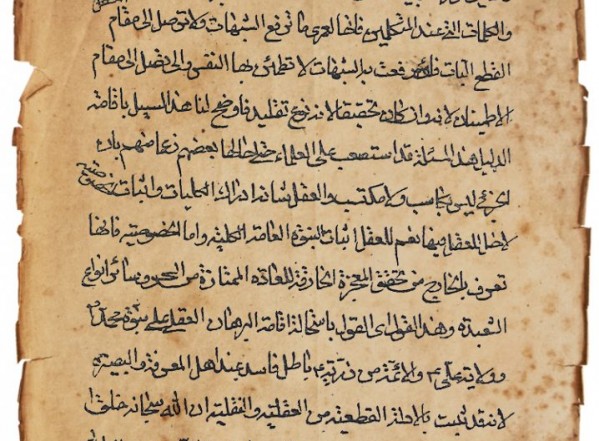 والكلمات التي عند المتكلمين فانها لعمري ما ترفع الشبهات ولا توصل الى مقام
القطع الثبات فلو رفعت بها الشبهات لا تطمئن بها النفس والى تصل الى مقام
الاطمينان لانه وان كان تحقيقا لانه نوع تقليد فاوضح لنا هذا السبيل باقامة
الدليل هذه المسئلة قد استصعب على العلماء حتى احالها بعضهم زعما منهم بان
الجزئي ليس بكاسب ولا مكتسب والعقل شانه ادراك الكليات واثبات الخصوصية
لاحظ للعقل فيها نعم للعقل اثبات النبوة العامة الكلية واما الخصوصية فانها
تعرف بالخارج من تحقق المعجزة الخارقة للعادة الممتازة من السحر وسائر انواع
الشعبدة وهذا القول اى القول باستحالة اقامة البرهان العقلي على نبوة محمد ص
وولاية علي ع والائمة من ذريته ع باطل فاسد عند اهل المعرفة والبصيرة
لانه قد ثبت بالادلة القطعية من العقلية والنقلية ان الله سبحانه خلق